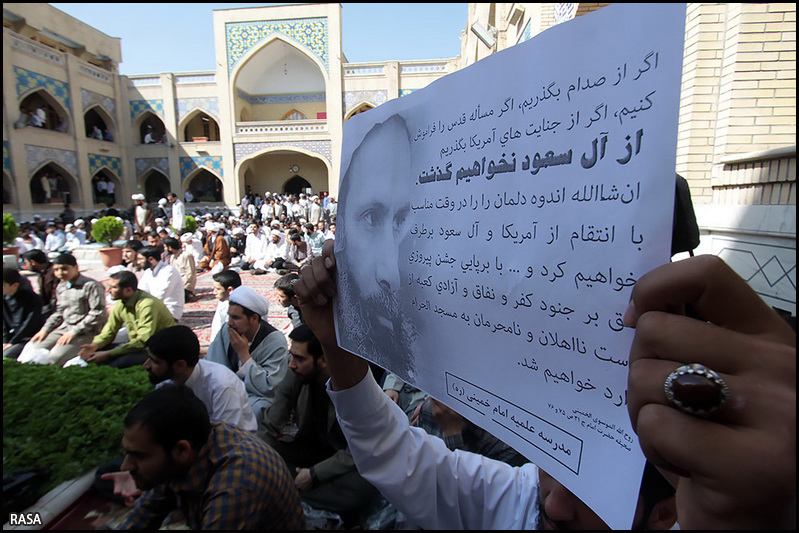 اگر از صدام بگذریم، اگر مسأله قدس را فراموش
کنیم، اگر از جنایت های آمریکا بگذریم
از آل سعود نخواهیم گذشت.
ان‌شاالله اندوه دلمان را در وقت مناسب
با انتقام از آمریکا و آل سعود برطرف
خواهیم کرد و ... با برپایی جشن پیروزی
ق بر جنود کفر و نفاق و آزادی کعبه از
ست نااهلان و نامحرمان به مسجد الحرام
ارد خواهیم شد.
روح الله الموسوی الخمینی
صحیفه حضرت امام ج ۲۱ ص ۷۵ و ۷۶
مدرسه علمیه امام خمینی (ره)
RASA